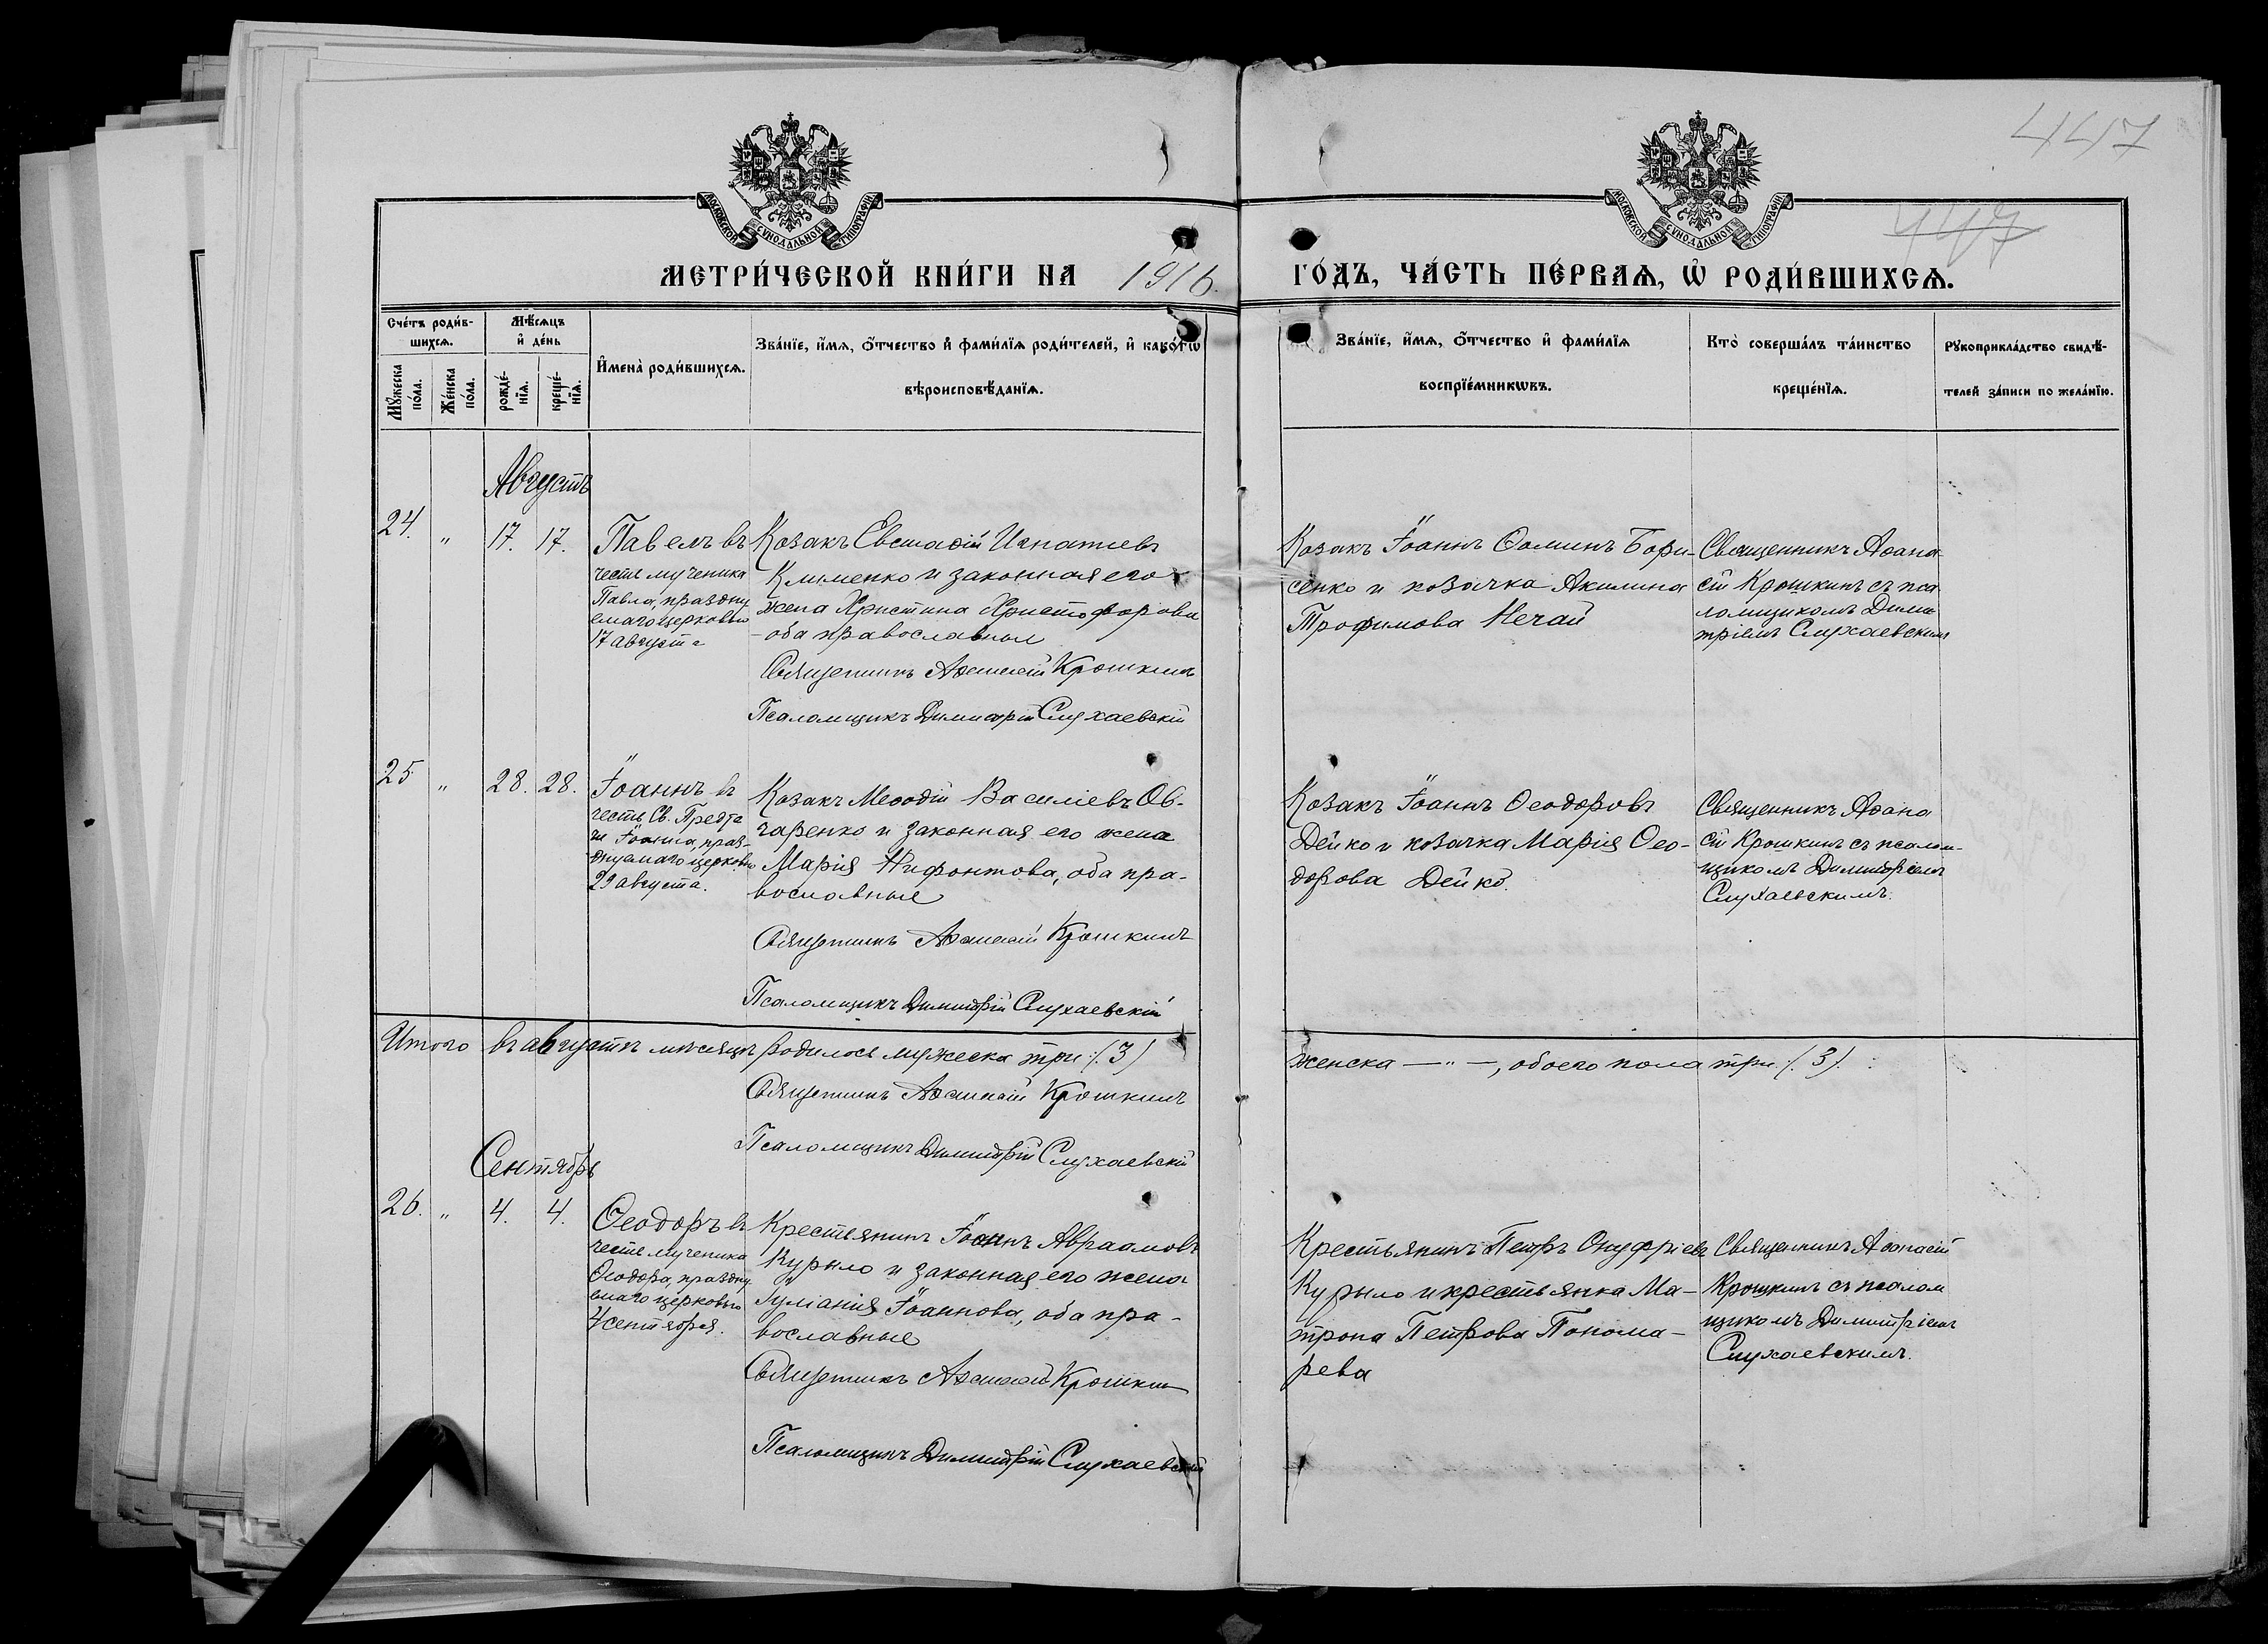 447
447
МОСКОВСКОЙ СѴНОДАЛЬНОЙ ТИПОГРАФІИ
МОСКОВСКОЙ СѴНОДАЛЬНОЙ ТИПОГРАФІИ
МЕТРИ́ЧЕСКОЙ КНИ́ГИ НА 1916. ГО́ДЪ, ЧА́СТЬ ПЕ́РВАѦ, Ѡ҆ РОДИ́ВШИХСѦ.
Сче́тъ роди́в-
шихсѧ.
Мꙋ́жеска по́ла.
Же́нска по́ла.
Мѣ́сѧцъ и҆ де́нь
рожде́-
нїѧ.
креще́-
нїѧ.
И҆мена̀ роди́вшихсѧ.
Зва́нїе, и҆́мѧ, ѻ҆́тчество и҆ фами́лїѧ роди́телей, и҆ како́гѡ
вѣроисповѣ́данїѧ.
Зва́нїе, и҆́мѧ, ѻ҆́тчество и҆ фами́лїѧ
воспрїе́мникѡвъ.
Кто̀ соверша́лъ та́инство
креще́нїѧ.
Рꙋкоприкла́дство свидѣ́-
телей за́писи по жела́нїю.
Августъ
24. " 17. 17.
Павелъ въ
честь мученика
Павла, праздну
емаго церковью
17 августа
Козакъ Евстаѳій Игнатіевъ
Клименко и законная его
жена Христина Христофорова
оба православные
Священникъ Аѳанасій Крошкинъ
Псаломщикъ Димитрій Слухаевскій
Козакъ Іоаннъ Ѳоминъ Бори-
сенко и козачка Акилина
Трофимова Нечай
Священникъ Аѳана
сій Крошкинъ съ пса
ломщикомъ Дими
тріемъ Слухаевскимъ
25 " 28. 28.
Іоаннъ въ
честь Св. Предте
чи Іоанна, праз-
днуемаго церковью
29 августа.
Козакъ Меѳодій Василіевъ Ов-
чаренко и законная его жена
Марія Нифонтова, оба пра-
вославные
Священникъ Аѳанасій Крошкинъ
Псаломщикъ Димитрій Слухаевскій
Козакъ Іоаннъ Ѳеодоровъ
Дейко и козачка Марія Ѳео-
дорова Дейко.
Священникъ Аѳана
сій Крошкинъ съ псалом-
щикомъ Димитріемъ
Слухаевскимъ.
Итого въ августѣ мѣсяцѣ родилось мужеска три (3) женска — " —, обоего пола три (3).
Священникъ Аѳанасій Крошкинъ
Псаломщикъ Димитрій Слухаевскій
Сентябрь
26. " 4. 4.
Ѳеодоръ въ
честь мученика
Ѳеодора, праздну
емаго церковью
4 сентября.
Крестьянинъ Іоаннъ Авраамовъ
Курыло и законная его жена
Іуліанія Іоаннова, оба пра-
вославные
Священникъ Аѳанасій Крошкинъ
Псаломщикъ Димитрій Слухаевскій
Крестьянинъ Петръ Онуфріевъ
Курыло и крестьянка Ма-
трона Петрова Понома-
рева
Священникъ Аѳанасій
Крошкинъ съ псалом
щикомъ Димитріемъ
Слухаевскимъ.